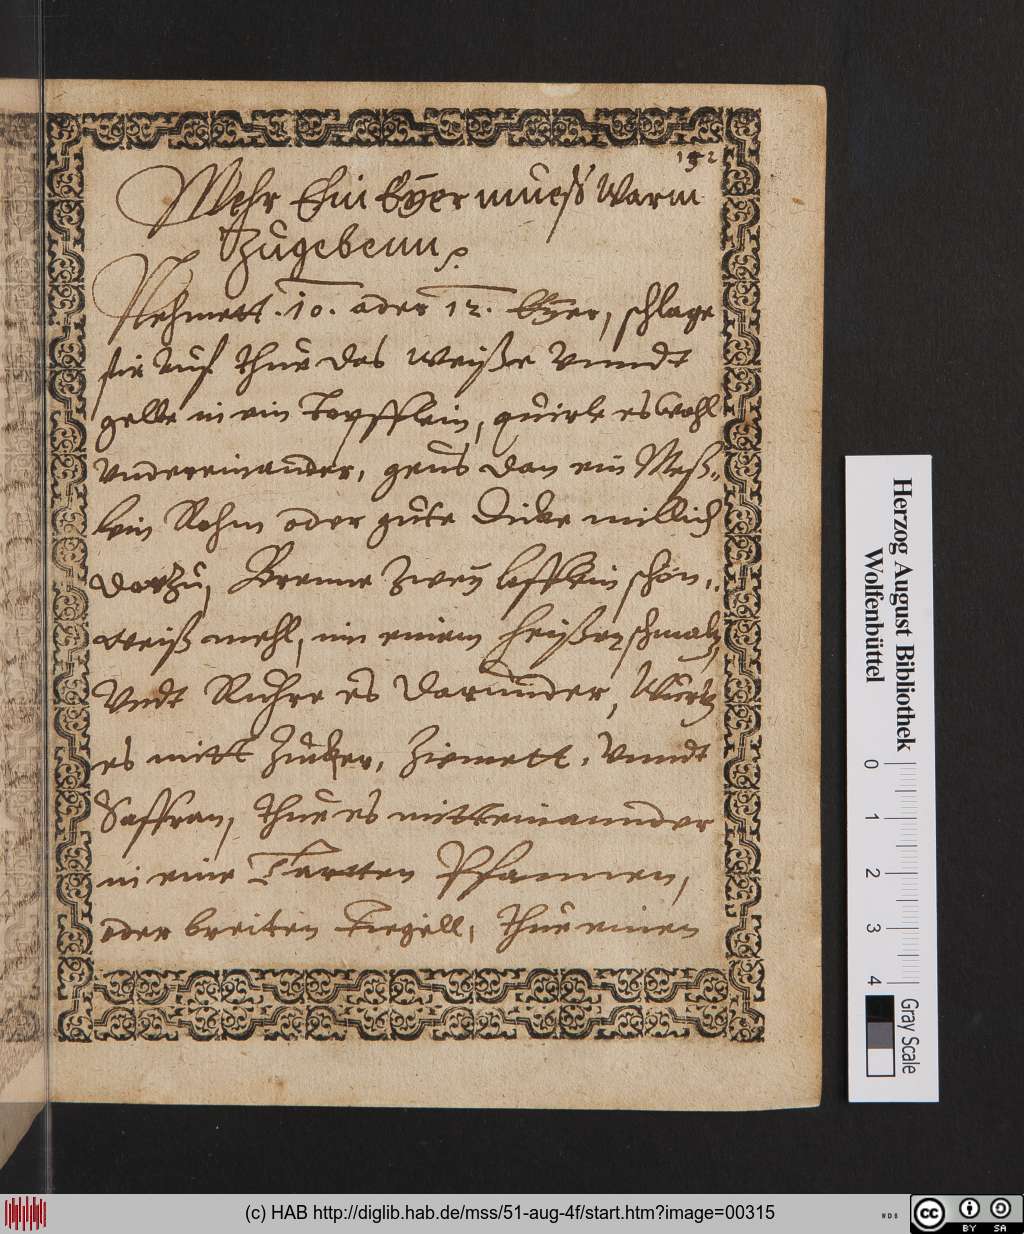 152
Mehr Ein Eÿer muess Warm
Zugebenn.
Nehmett .10. oder 12. Eÿer, schlage
sie auf thue das weiße vnndt
gelbe in ein Topfflein, quirle es wohl
vndereinander, geus dan ein Meß„
lein Rohm oder gute dicke millich
darzu, Brenne zweÿ lefflein schön„
weiß mehl, in einem heißen schmaltz,
Vndt Ruhre es darunder, Würtz
es mitt Zucker, Ziemett, vnndt
Saffran, thue es mitteinannder
in eine Tartten Pfannen,
oder breiten Tiegell, thue einen
Herzog August Bibliothek
Wolfenbüttel
0 1 2 3 4
Gray Scale
(c) HAB http://diglib.hab.de/mss/51-aug-4f/start.htm?image=00315
WDB
cc BY SA